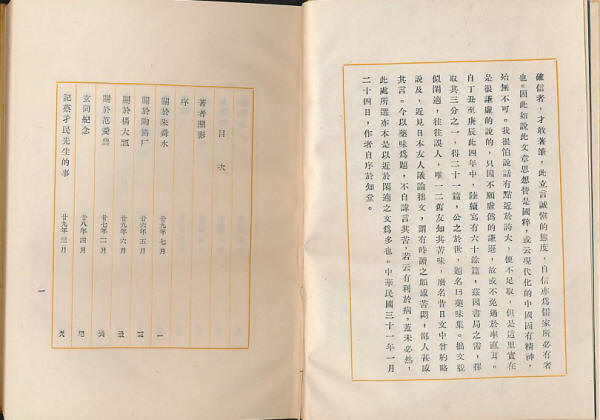 確信者，才敢著筆，此立言誠慎的態度，自信亦爲儒家所必有者
也。因此如說此文章思想皆是國粹，或云現代化的中國固有精神，
殆無不可。我很怕說話有點近於誇大，便不足取，但是這里實在
是很謙虛的說的，只因不願虛僞的謙遜，故或不免過於率直耳。
自丁丑至庚辰此四年中，陸續寫有六十餘篇，茲因書局之需，擇
取其三分之一，得二十一篇，公之於世，題名曰藥味集。拙文貌
似閑適，往往誤人，唯一二舊友知其苦味，廢名昔日文中曾約略
說及，近見日本友人議論拙文，謂有時讀之頗感苦悶，鄙人甚感
其言。今以藥味爲題，不自諱言其苦，若云有利於病，蓋未必然，
此處所選亦本是以近於閑適之文爲多也。中華民國三十一年一月
二十四日，作者自序於知堂。
目 次
著者照影
序
關於朱舜水 廿九年七月 一
關於陶筠厂 廿六年五月
關於楊大瓢 廿九年六月
關於范愛農 廿七年二月
玄同紀念 廿八年四月
記蔡孑民先生的事 廿九年三月
一